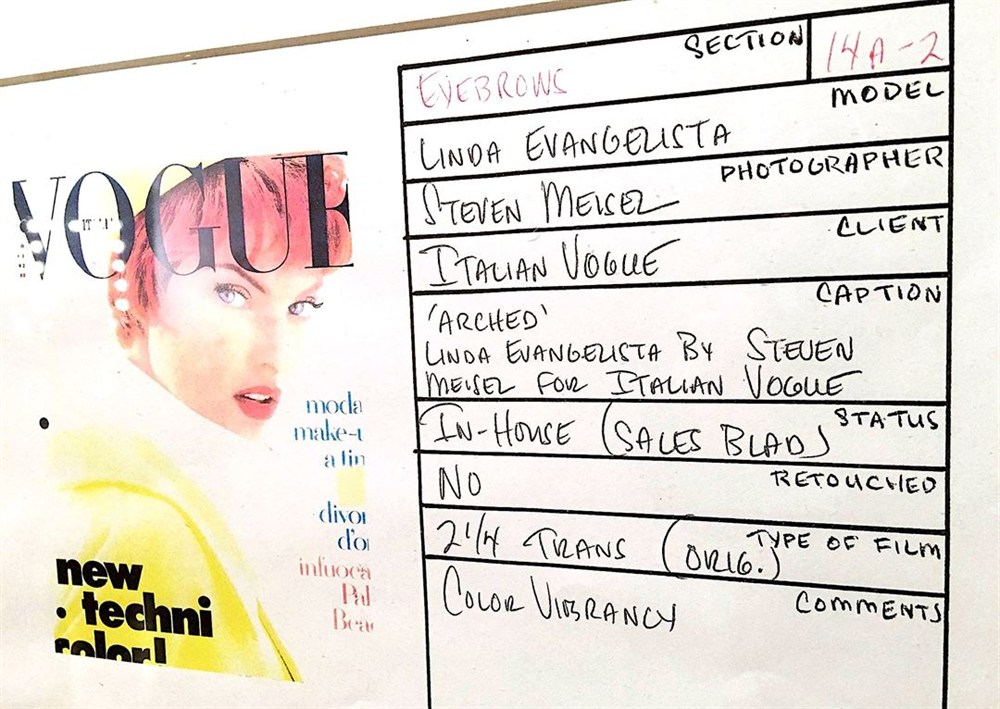 VOGUE
moda
make-
a
divo
d'o
infuoca
Pal
Bea
new
• techni
color!
SECTION
14A-2
EYEBROWS
MODEL
LINDA EVANGELISTA
PHOTOGRAPHER
STEVEN MEISEL
CLIENT
ITALIAN VOGUE
CAPTION
'ARCHED'
LINDA EVANGELISTA BY STEVEN
MEISEL FOR ITALIAN VOGUE
STATUS
IN-HOUSE (SALES BLAD)
RETOUCHED
NO
TYPE OF FILM
2 1/4 TRANS (ORIG.)
COMMENTS
COLOR VIBRANCY